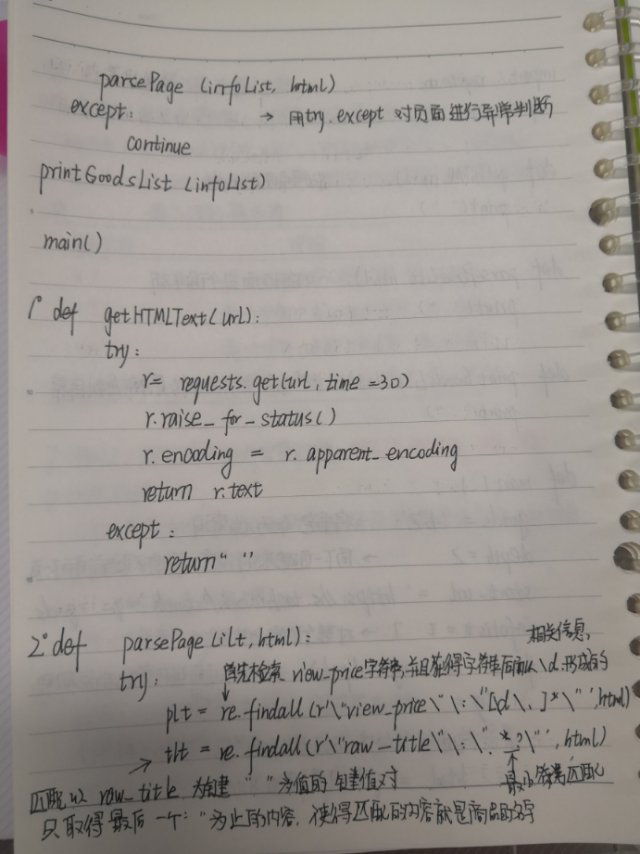 parsePage (infoList, html)
except: → 用try.except 对页面进行异常判断
continue
printGoodsList (infoList)
main()
1° def getHTMLText(url):
try:
r= requests.get(url, time =30)
r.raise_for_status()
r.encoding = r. apparent_encoding
return r.text
except:
return" "
2° def parsePage (ilt, html):
相关信息,
try: 首先检索 view_price字符串,并且获得字符串后面以\d.形成的
plt = re.findall(r'\"view_price\"\:\"[\d\.]*\"',html)
→ tlt = re.findall(r'\"raw_title\"\:\".*?\"',html)
匹配以 raw_title 为键 " "为值的键值对 最小匹配
只取得最后一个:"为止的内容,使得匹配的内容就是商品的名字